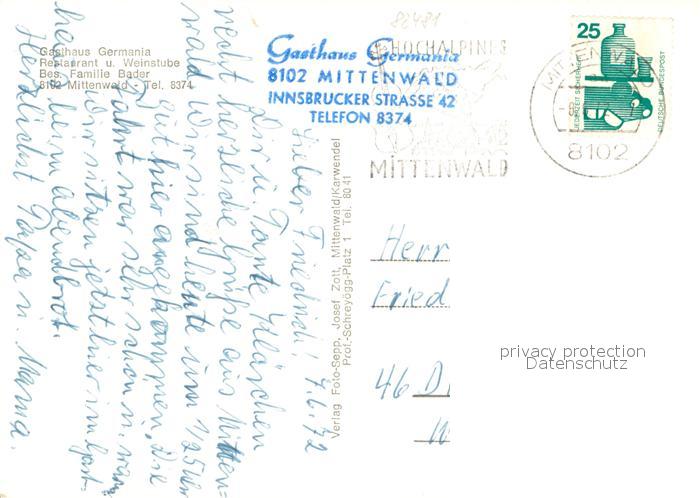 86481
Gasthaus Germania
Restaurant u. Weinstube
Bes. Familie Bader
8102 Mittenwald - Tel. 8374
Gasthaus Germania
8102 MITTENWALD
INNSBRUCKER STRASSE 42
TELEFON 8374
HOCHALPINES
MITTENWALD
MITTENWALD
8102
25
JEDERZEIT SICHERHEIT
DEUTSCHE BUNDESPOST
Lieber Friedrich! 7.6.72
Dir u. Tante Kläuschen
recht herzliche Grüße aus Mitten=
wald. Wir sind heute um 1/2 5 Uhr
gut hier angekommen. Die
Fahrt war sehr schön u. warm
Wir sitzen jetzt hier im Gast=
haus beim Abendbrot.
Herzlichst Papa u. Mama.
Verlag Foto-Sepp, Josef Zott, Mittenwald/Karwendel
Prof.-Schreyögg-Platz 1 Tel. 80 41
Herr
Fried
46 D
privacy protection
Datenschutz